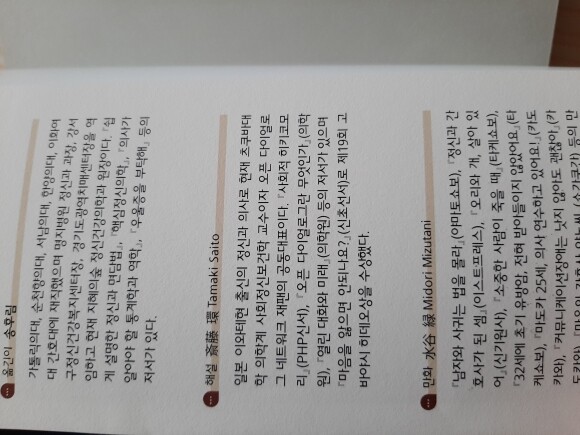 옮긴이 송후림
가톨릭의대, 순천향의대, 서남의대, 한양의대, 이화여
대 간호대에 재직했으며 명지병원 정신과 과장, 강서
구정신건강복지센터장, 경기도광역치매센터장을 역
임하고 현재 지혜의숲 정신건강의학과 원장이다. 『쉽
게 설명한 정신과 면담법』, 『핵심정신의학』, 『의사가
알아야 할 통계학과 역학』, 『우울증을 부탁해』 등의
저서가 있다.
해설 斎藤 環 Tamaki Saito
일본 이와테현 출신의 정신과 의사로 현재 츠쿠바대
학 의학계 사회정신보건학 교수이자 오픈 다이얼로
그 네트워크 재팬의 공동대표이다. 『사회적 히키코모
리』(PHP신서), 『오픈 다이얼로그란 무엇인가』(의학
원), 『열린 대화와 미래』(의학원) 등의 저서가 있으며
『마음을 잃으면 안되나요?』(신초선서)로 제19회 고
바야시 히데오상을 수상했다.
만화 水谷 緑 Midori Mizutani
『남자와 사귀는 법을 몰라』(야마토쇼보), 『정신과 간
호사가 된 셈』(이스트프레스), 『오리와 개, 살아 있
어』(신기원사), 『소중한 사람이 죽을 때』(타케쇼보),
『32세에 초기 유방암, 전혀 받아들이지 않았어요』(타
케쇼보), 『마도카 25세, 의사 연수하고 있어요!』(카도
카와), 『커뮤니케이션장애는 낫지 않아도 괜찮아』(카